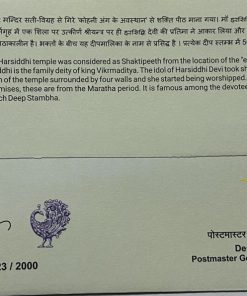 मन्दिर सती-विग्रह से गिरे 'कोहनी अंग के अवस्थान' से शक्ति पीठ माना गया। माँ
में एक शिला पर उत्कीर्ण श्रीयन्त्र पर ही हरसिद्धि देवी की प्रतिमा ने आकार लिया और
मराठाकालीन है। भक्तों के बीच यह दीपमालिका के नाम से प्रसिद्ध है। प्रत्येक दीप स्तम्भ में
Harsiddhi temple was considered as Shaktipeeth from the location of the "e
is the family deity of king Vikrmaditya. The idol of Harsiddhi Devi took sh
of the temple surrounded by four walls and she started being worshipped.
mises, these are from the Maratha period. It is famous among the devotee
ch Deep Stambha.
पोस्टमास्टर
De
Postmaster Ge
23 / 2000